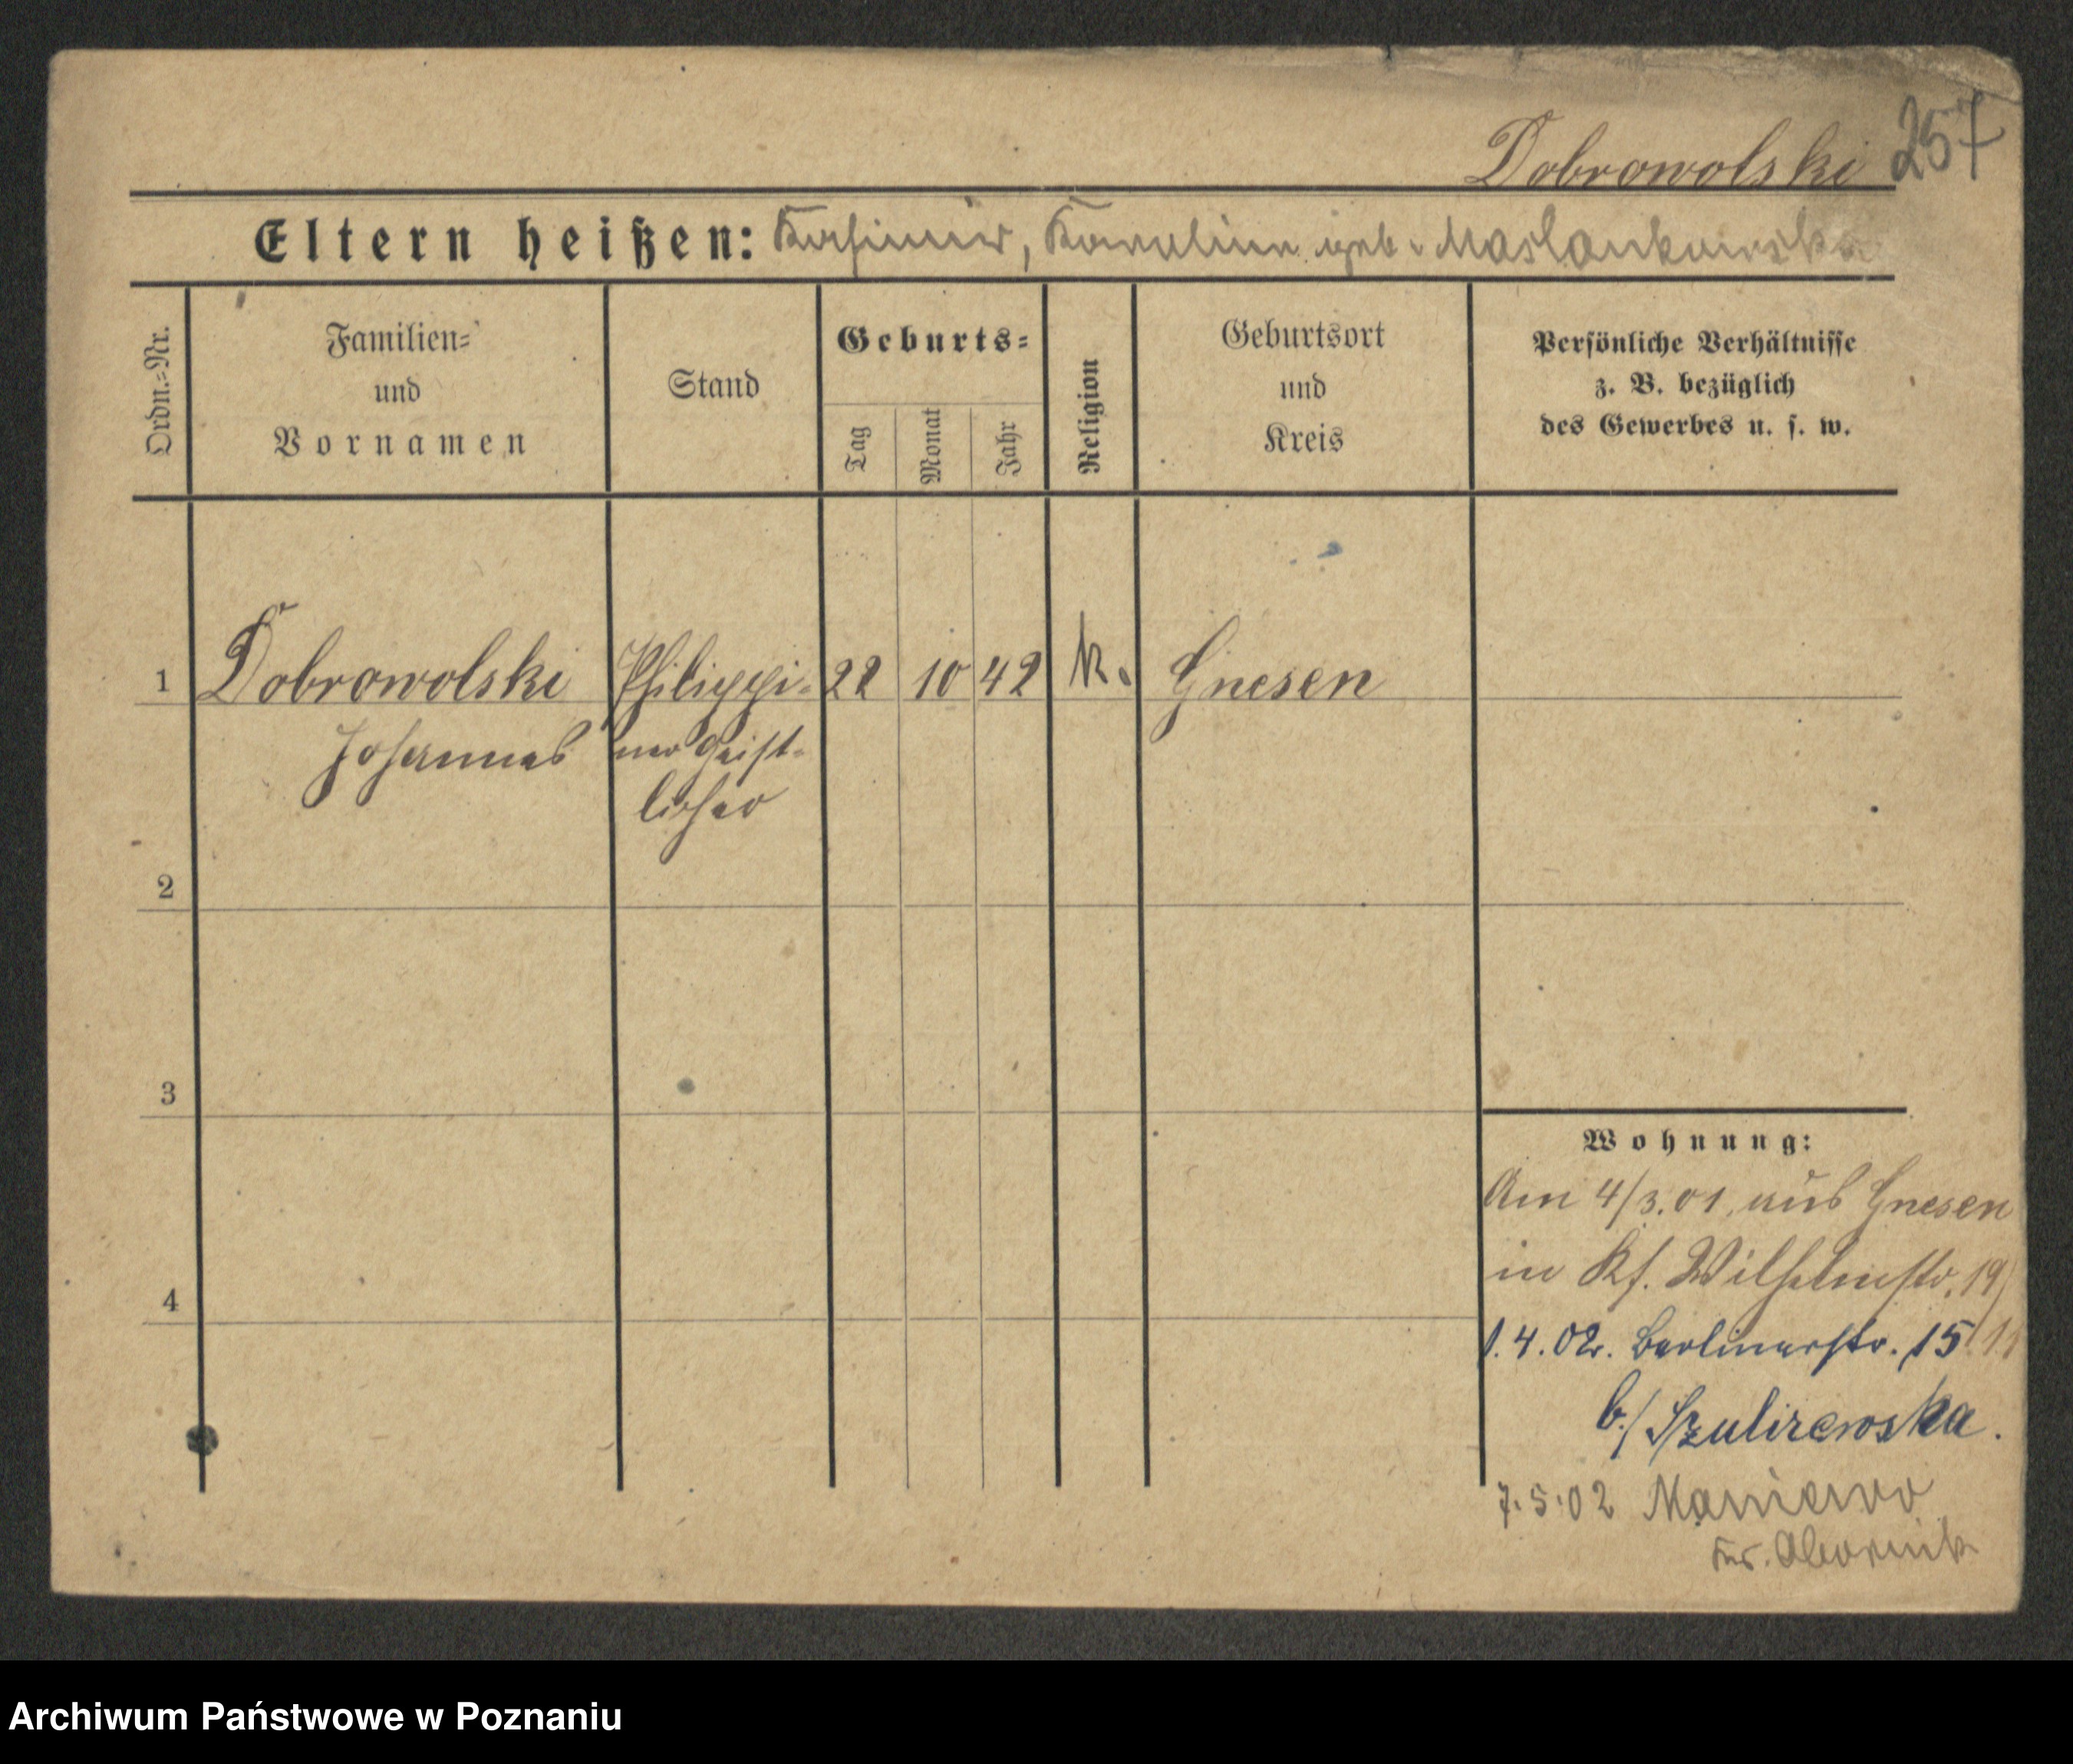 257
Dobrowolski
Eltern heißen: Kasimir, Karoline geb. Maslankowska
Ordn.=Nr.
Familien=
und
Vornamen
Stand
Geburts=
Tag
Monat
Jahr
Religion
Geburtsort
und
Kreis
Persönliche Verhältnisse
z. B. bezüglich
des Gewerbes u. s. w.
1 Dobrowolski Philippi- 22 10 42 k. Gnesen
Johannes ner Geist-
licher
2
3
4
Wohnung:
Am 4/3.01. aus Gnesen
in Kf. Wilhelmstr. 19
1.4.02. Berlinerstr. 15
b/ Szulizewska.
7.5.02 Maniewo
Kr. Obornik
Archiwum Państwowe w Poznaniu